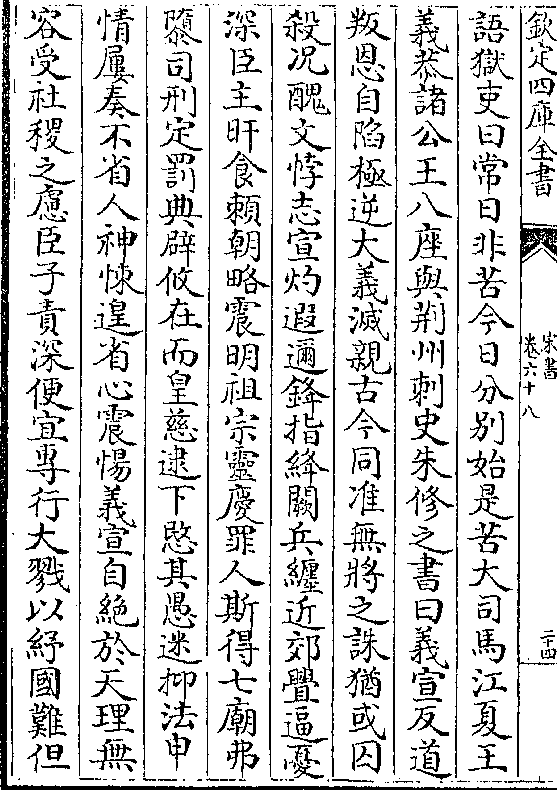 欽定四庫全書
宋書
卷六十八
二十四
語獄吏曰常日非苦今日分別始是苦大司馬江夏王
義恭諸公王八座與荆州刺史朱修之書曰義宣反道
叛恩自陷極逆大義滅親古今同准無將之誅猶或囚
殺況醜文悖志宣灼遐邇鋒指絳闕兵纏近郊釁逼憂
深臣主旰食賴朝略震明祖宗靈慶罪人斯得七廟弗
隳司刑定罰典辟攸在而皇慈逮下愍其愚迷抑法申
情屢奏不省人神悚遑省心震惕義宣自絶於天理無
容受社稷之慮臣子責深便宜專行大戮以紓國難但